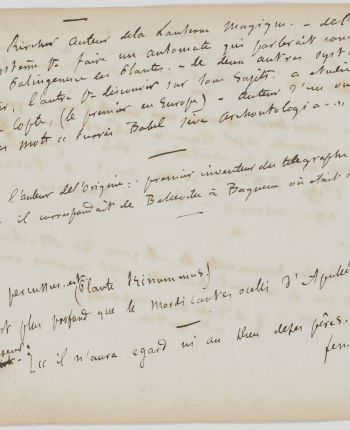 Kircher auteur de la Lanterne Magique. - de l'
système pr faire un automate qui parlerait comme
Palingenesie des Plantes. - de deux autres syst.
l'autre pr discourir sur tous sujets. a étudié
Copte, (le premier en Europe) - auteur d'un ou
mots « turris Babel sive archontologia ..,
l'auteur de l'Origine : premier inventeur du telegraphe
il correspondait de Belleville à Bagneux où était
percussus est (Plaute trinummus)
plus profond que le mordicantes oculi d'Apulée
[« il n'aura egard ni au Dieu de ses pères.
fem